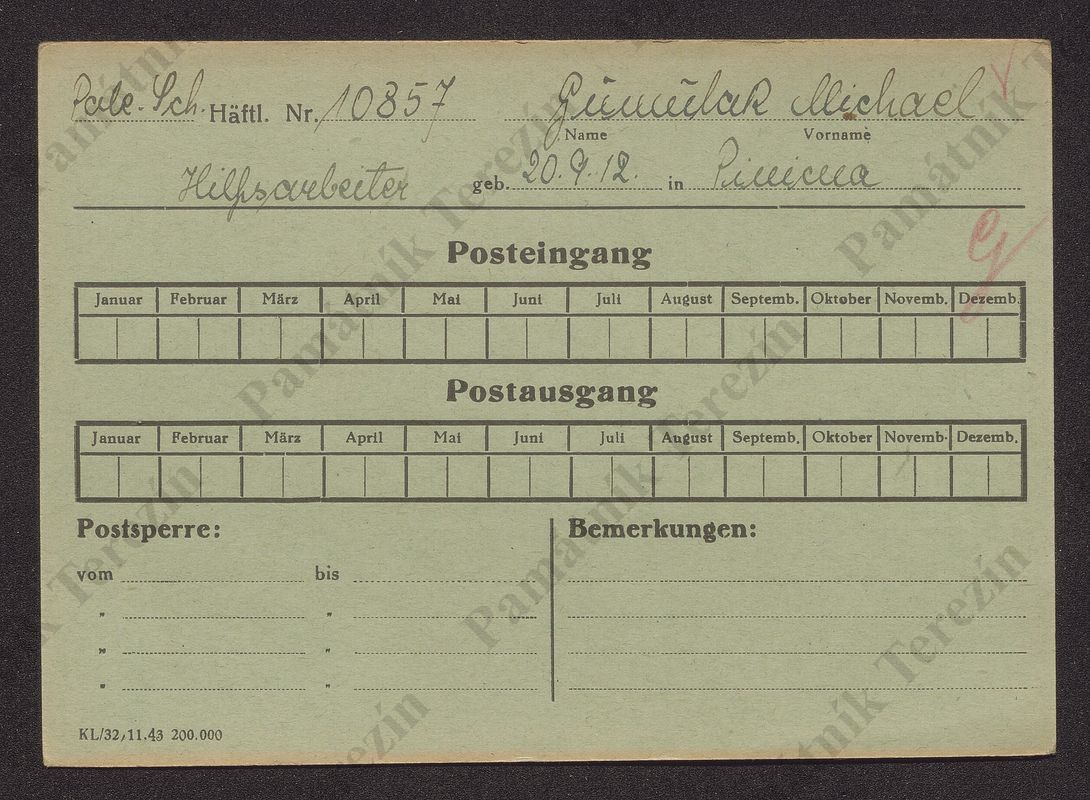 Pole. Sch. Häftl. Nr. 10857 Gumulak Michael
Name Vorname
Hilfsarbeiter geb. 20.9.12. in
Posteingang
Januar Februar März April Mai Juni Juli August Septemb. Oktober Novemb. Dezemb.
Postausgang
Januar Februar März April Mai Juni Juli August Septemb. Oktober Novemb. Dezemb.
Postsperre: Bemerkungen:
vom bis
" "
" "
" "
KL/32, 11.43 200.000
Památník Terezín